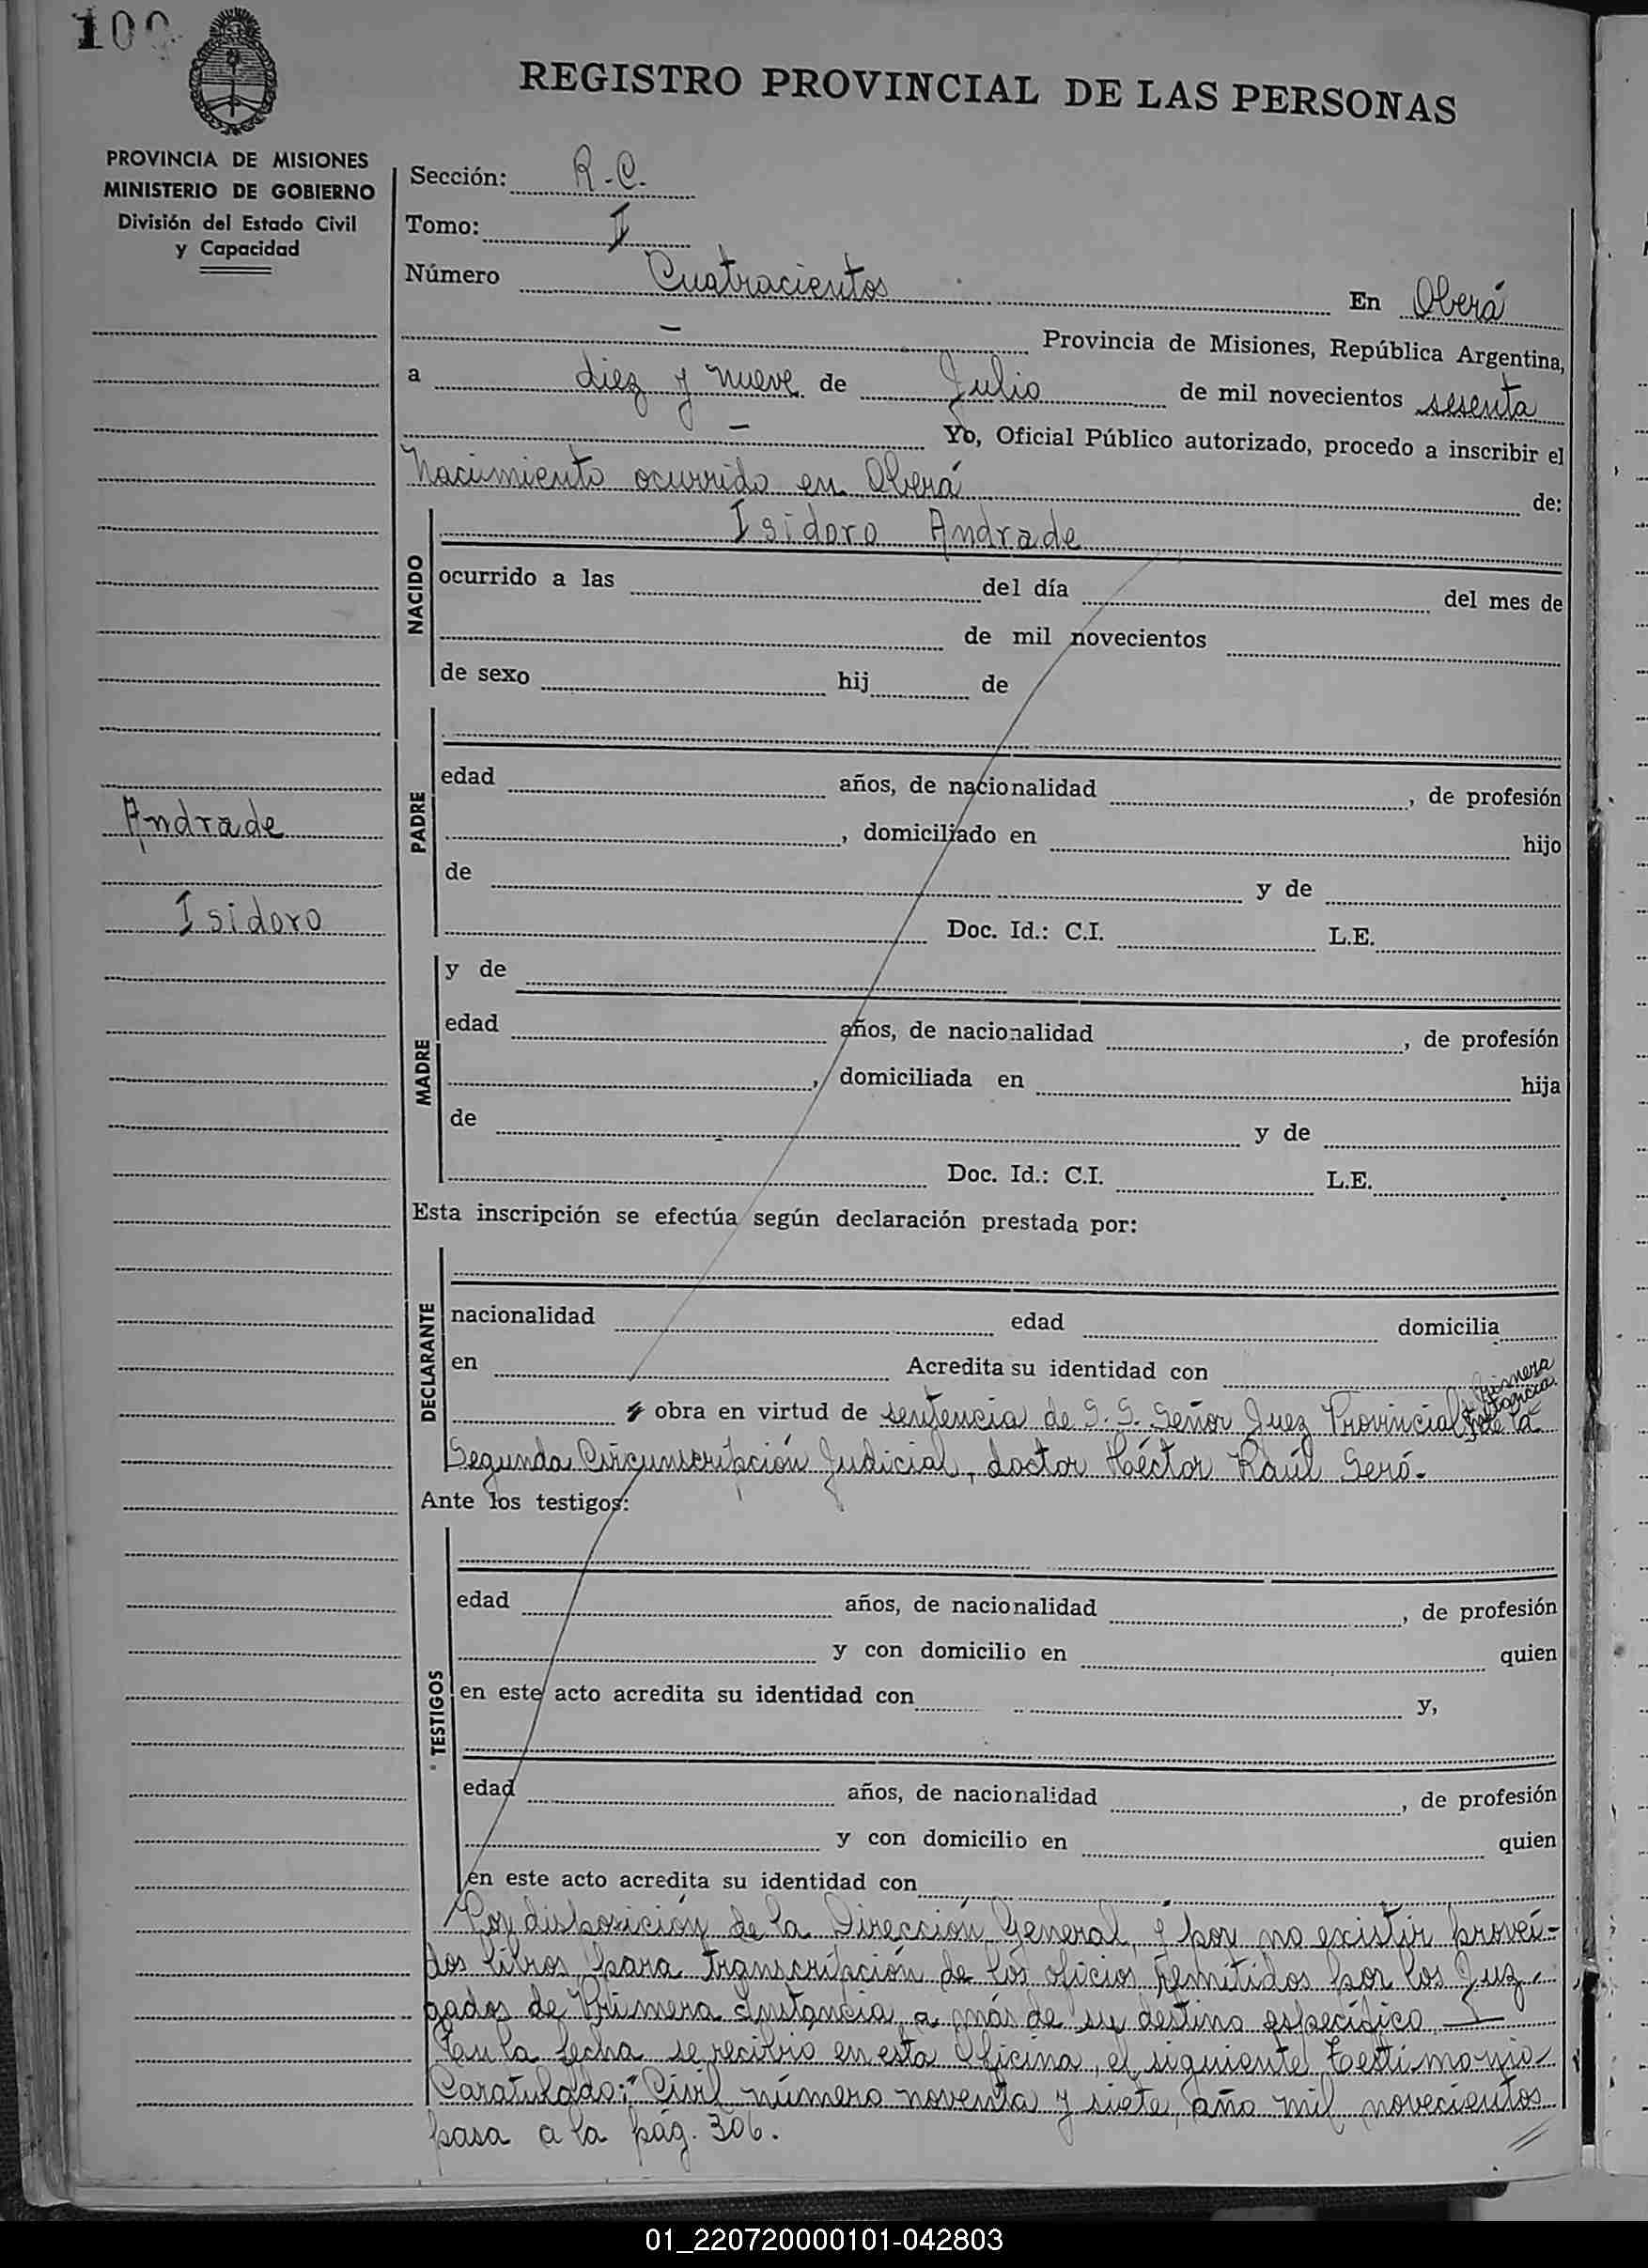 100
REGISTRO PROVINCIAL DE LAS PERSONAS
PROVINCIA DE MISIONES
MINISTERIO DE GOBIERNO
División del Estado Civil
y Capacidad
Sección: R.C.
Tomo: I
Número Cuatracientos En Oberá
— Provincia de Misiones, República Argentina,
a diez y nueve de Julio de mil novecientos sesenta
— Yo, Oficial Público autorizado, procedo a inscribir el
Nacimiento ocurrido en Oberá de:
NACIDO
Isidoro Andrade
ocurrido a las del día del mes de
de mil novecientos
de sexo hij de
PADRE
edad años, de nacionalidad , de profesión
, domiciliado en hijo
de y de
Doc. Id.: C.I. L.E.
Andrade
Isidoro
MADRE
y de
edad años, de nacionalidad , de profesión
, domiciliada en hija
de y de
Doc. Id.: C.I. L.E.
Esta inscripción se efectúa según declaración prestada por:
DECLARANTE
nacionalidad edad domicilia
en Acredita su identidad con
Primera
Instancia
obra en virtud de sentencia de S. S. Señor Juez Provincial de la
Segunda Circunscripción Judicial, doctor Héctor Raúl Seró.
Ante los testigos:
TESTIGOS
edad años, de nacionalidad , de profesión
y con domicilio en quien
en este acto acredita su identidad con y,
edad años, de nacionalidad , de profesión
y con domicilio en quien
en este acto acredita su identidad con
Por disposición de la Dirección General, é por no existir proveí-
dos libros para transcripción de los oficios remitidos por los Juz-
gados de Primera Instancia a más de su destino específico
En la fecha se recibió en esta Oficina, el siguiente Testimonio
Caratulado: "Civil número noventa y siete año mil novecientos
pasa a la pág. 306.
01_220720000101-042803